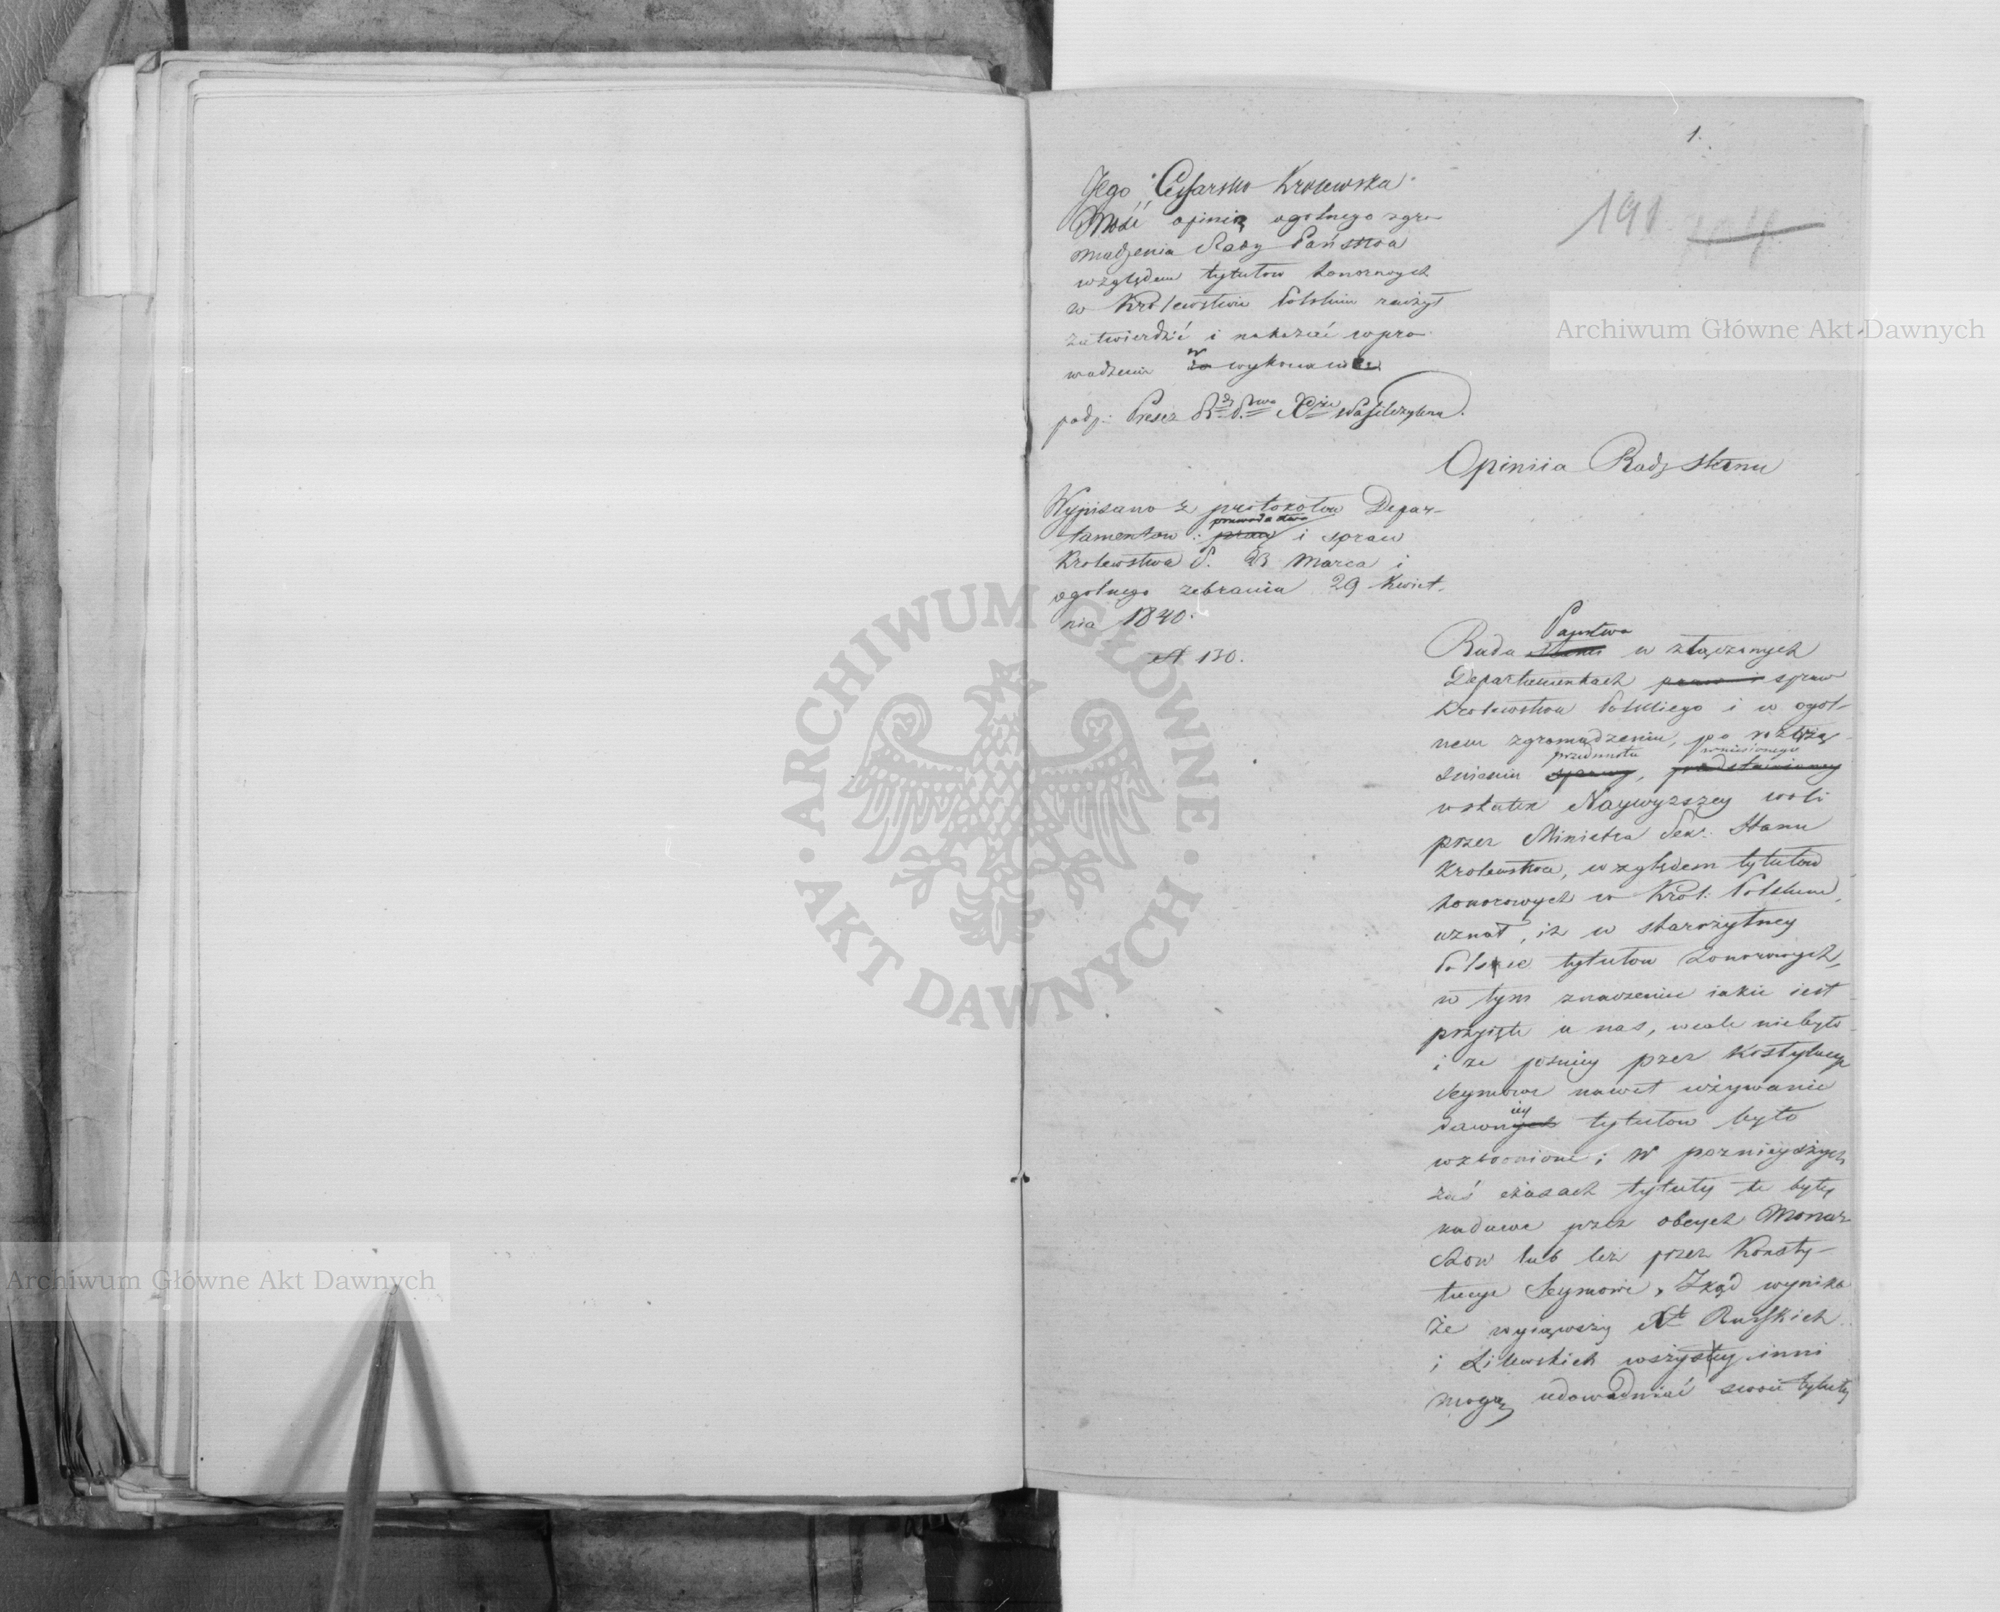 1.
191
Jego Cesarsko Krolewska
Mość opinią ogolnego zgro-
madzenia Rady Państwa
względem tytułow honorowych
w Krolewstwie Polskim raczył
zatwierdzić i nakazać wpro-
wadzenie w
podp: Prezes Xże Wasilczykow.
Opiniia Rady Stanu
Wypisano z protokołow Depar-
tamentow: prawodawstwa i spraw
Krolewstwa P. Marca i
ogolnego zebrania 29 Kwiet-
nia 1840.
N 130.
Rada Państwa w złączonych
Departamentach spraw
Krolewstwa Polskiego i w ogol-
nem zgromadzeniu, po roztrzą-
śnieniu przedmiotu wniesionego
wskutek Naywyzszey woli
przez Ministra Sek: Stanu
Krolewstwa, względem tytułow
honorowych w Krol: Polskiem,
uznał, iż w starożytney
Polsce tytułow honorowych,
w tym znaczeniu iakie iest
przyięte u nas, wcale niebyło
i ze pozniey przez Kostytucye
Seymowe nawet używanie
dawniey tytułow było
wzbronione; W pozniejszych
zaś czasach tytuły te były
nadawane przez obcych Monar-
chow lub też przez Konsty-
tucye Seymowe, Zkąd wynika
że wyiąwszy Xt Ruskich
i Litewskich wszyscy inni
mogą udowadniać swoie tytuły
Archiwum Główne Akt Dawnych
Archiwum Główne Akt Dawnych
ARCHIWUM GŁÓWNE
AKT DAWNYCH